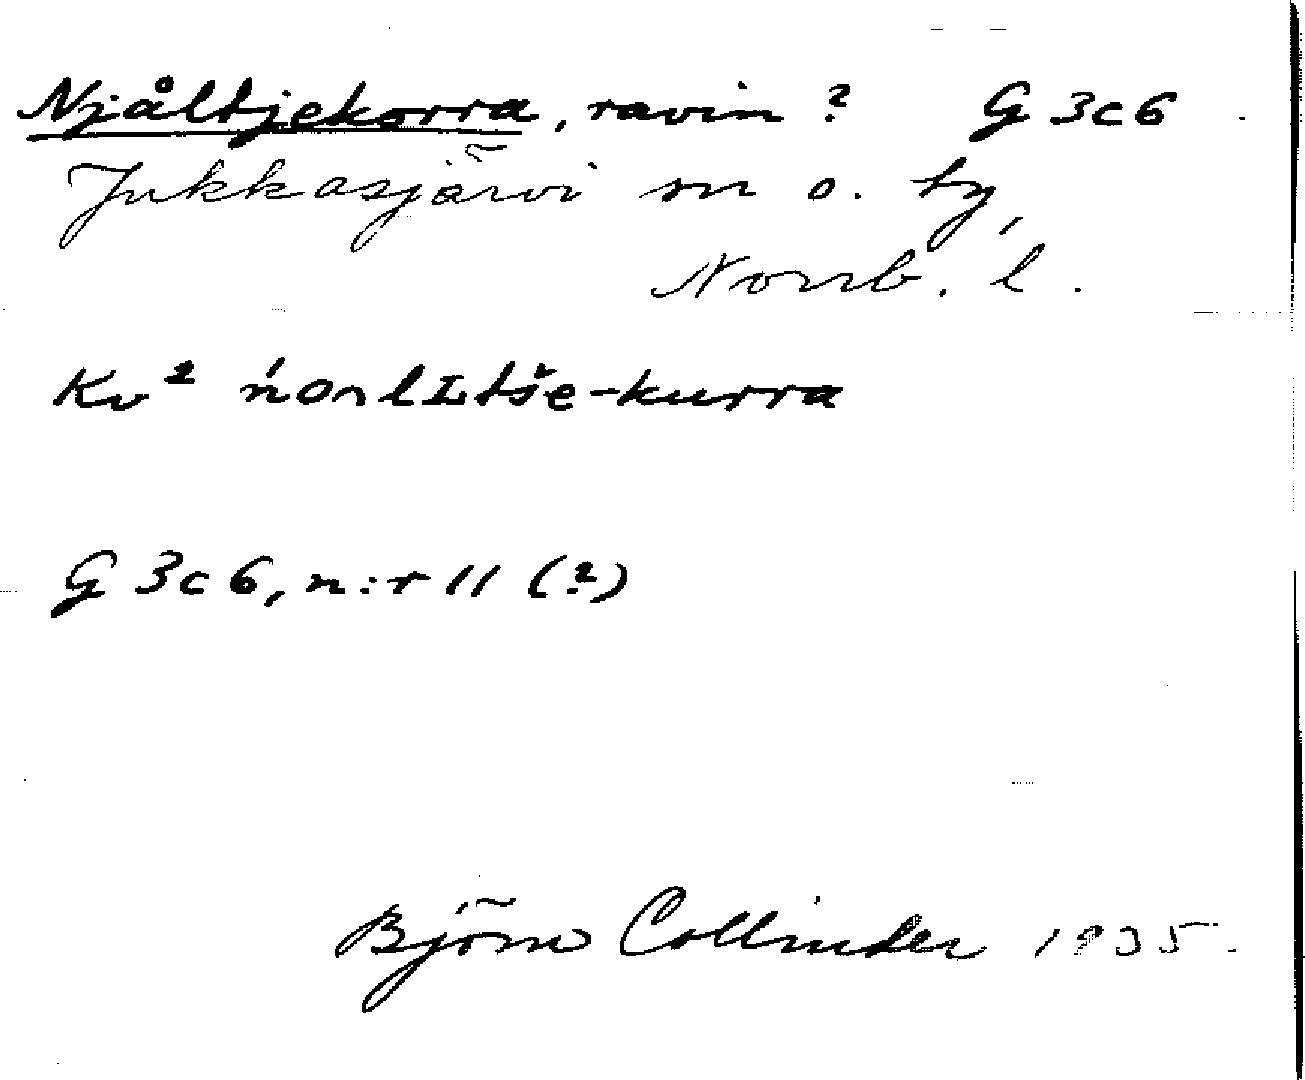 Njåltjekorra, ravin? G 3c6
Jukkasjärvi sn o. tg,
Norrb. l.
Kv² ńonlLtše-kurra
G 3c6, n:r 11 (?)
Björn Collinder 1935.